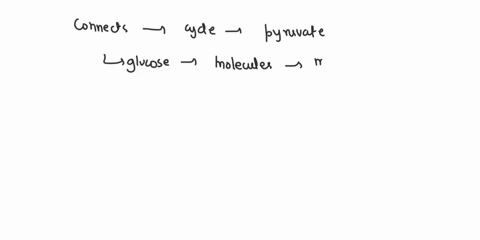 Connects → cycle → pyruvate
↳ glucose → molecules →